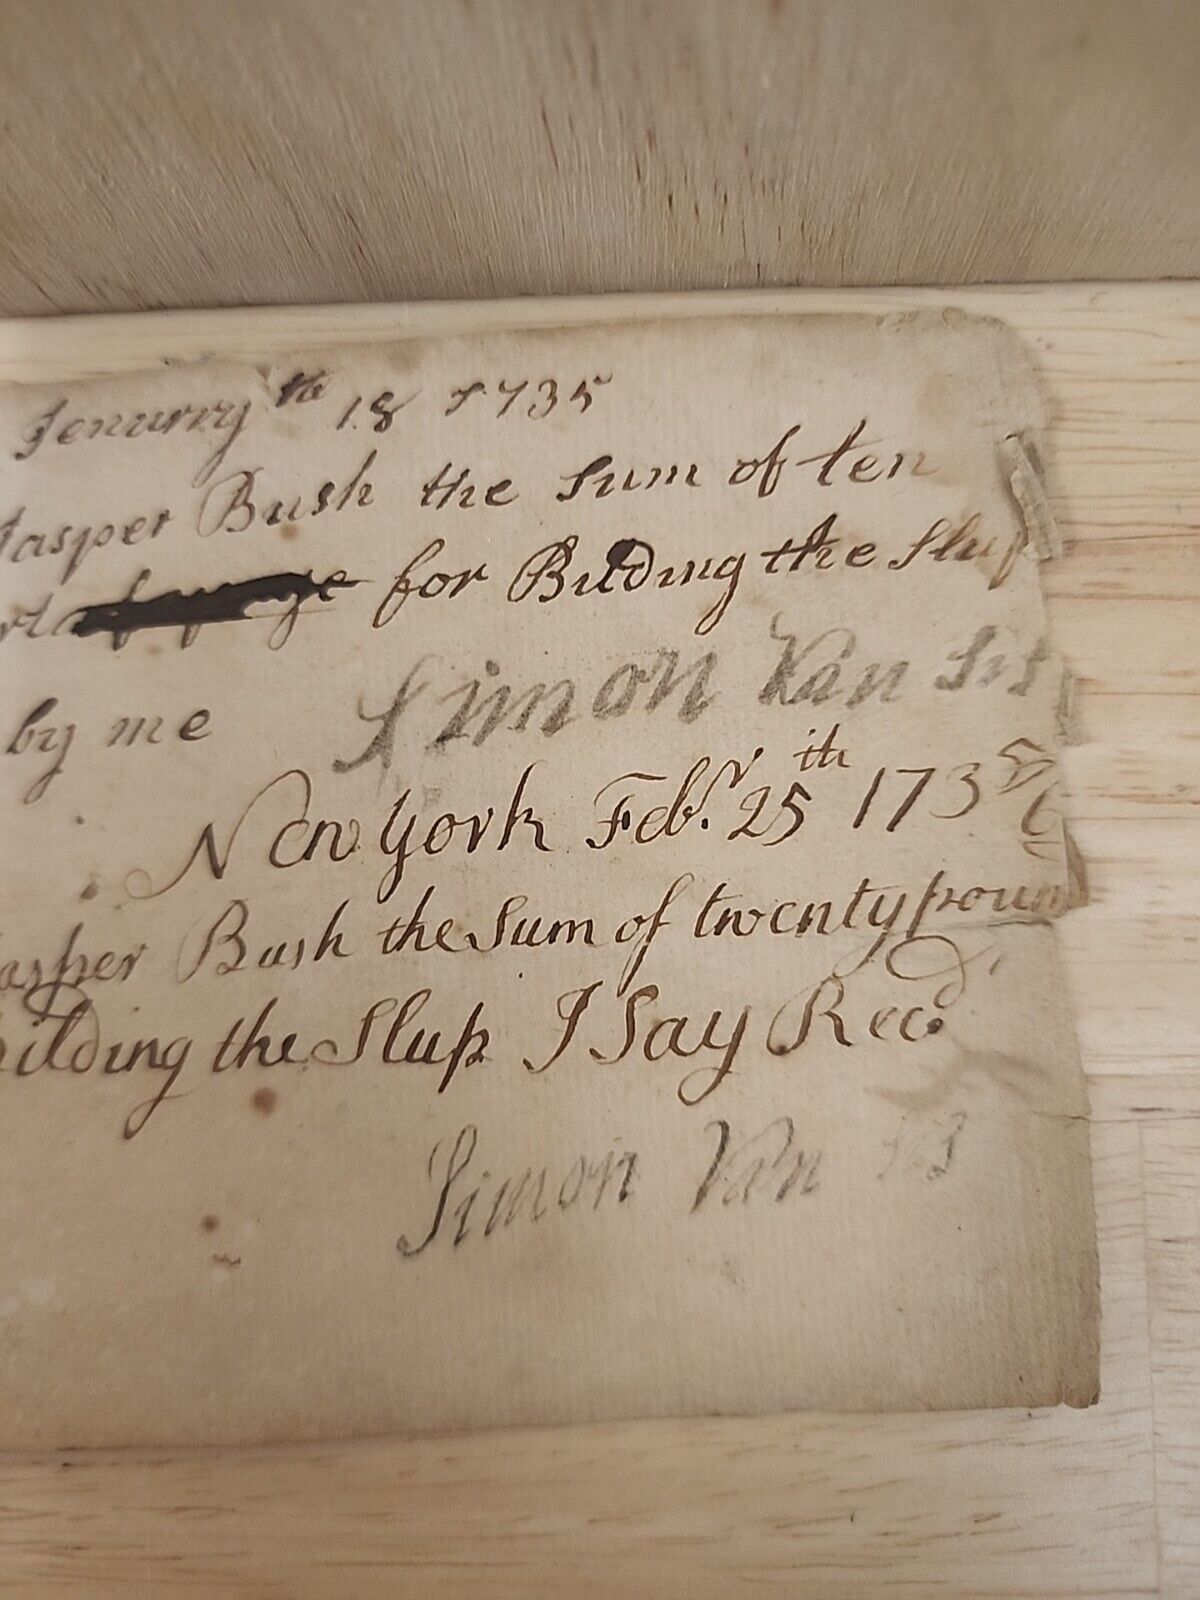 Jenurry th 18 1735
Jasper Bush the Sum of ten
for Bilding the Slup
by me Simon Van
New York Feb.r 25th 173 5/6
asper Bush the Sum of twenty poun
ilding the Slup I Say Recd
Simon Van